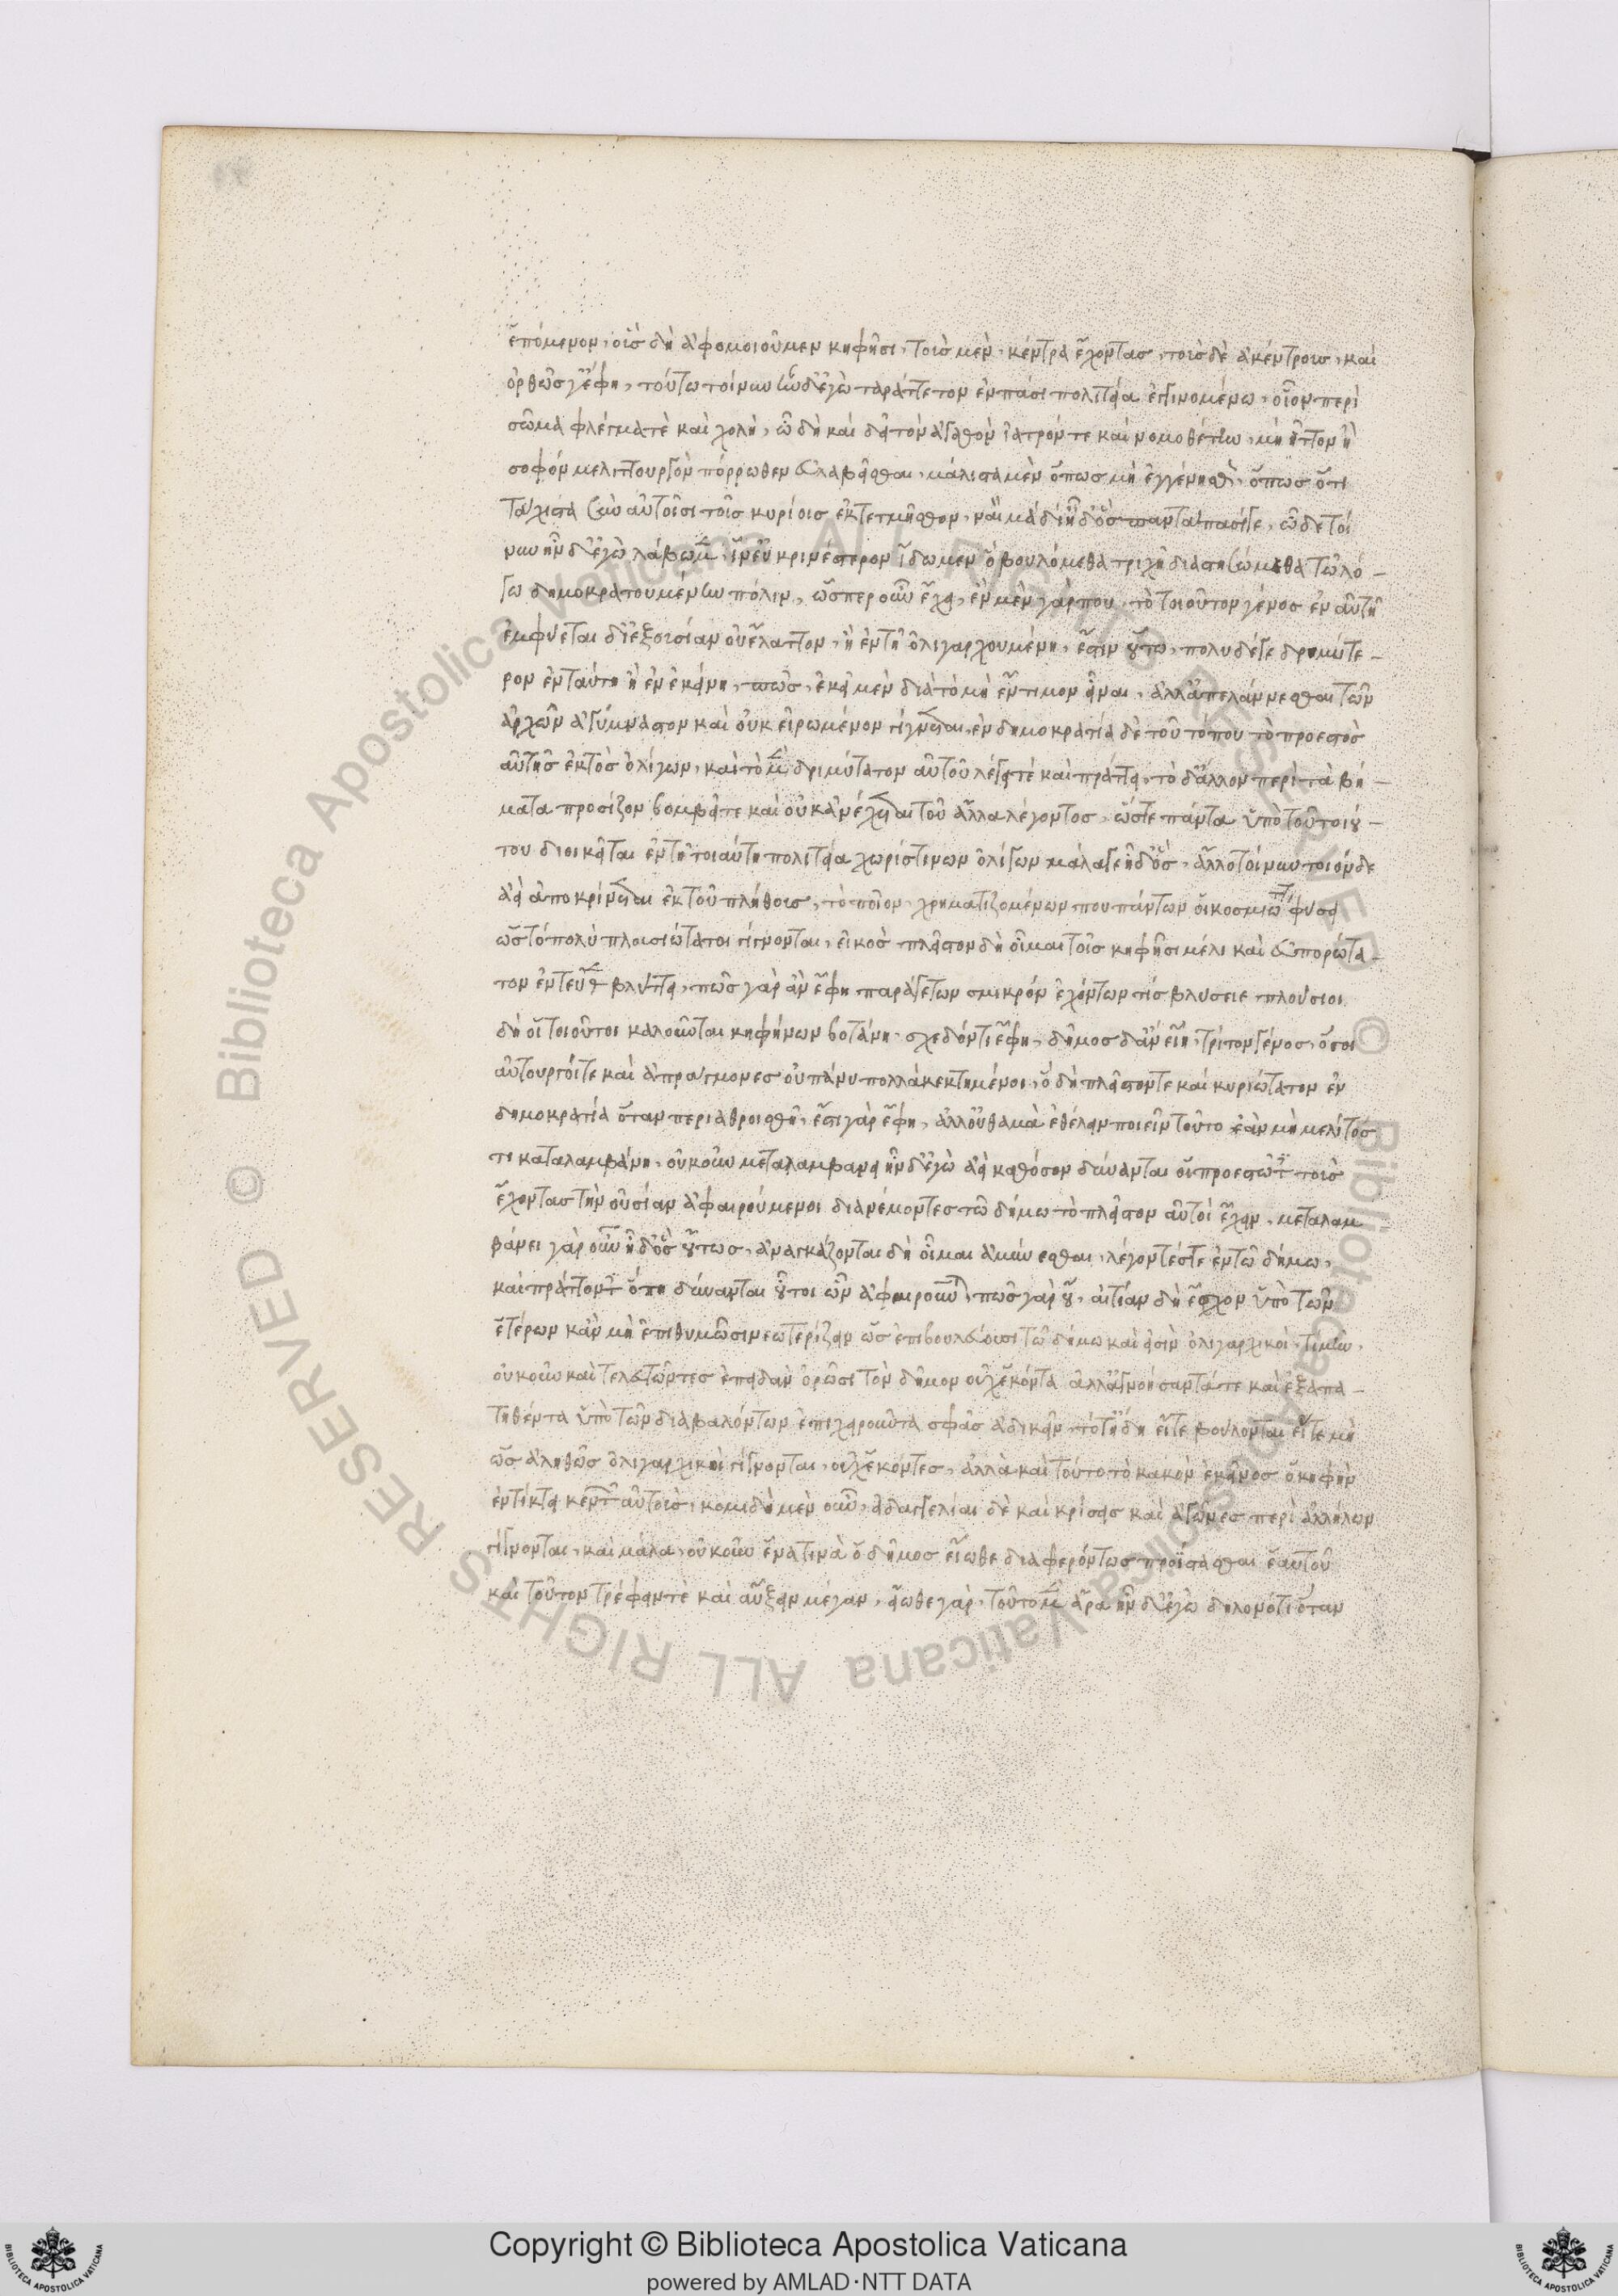 ἑπόμενον, οἷς δὴ ἀφομοιοῦμεν κηφῆσι, τοὺς μὲν κέντρα ἔχοντας, τοὺς δὲ ἀκέντρους, καὶ
ὀρθῶς γ' ἔφη, τούτω τοίνυν ἦν δ' ἐγὼ ταράττετον ἐν πάσῃ πολιτείᾳ ἐγγινομένω, οἷον περὶ
σῶμα φλέγμα τὲ καὶ χολὴ, ὣ δὴ καὶ δεῖ τὸν ἀγαθὸν ἰατρόν τε καὶ νομοθέτην, μὴ ἧττον ἢ
σοφὸν μελιττουργὸν πόρρωθεν εὐλαβεῖσθαι, μάλιστα μὲν ὅπως μὴ ἐγγένησθον, ὅπως ὅτι
τάχιστα ξὺν αὐτοῖσι τοῖς κηρίοις ἐκτετμῆσθον, ναὶ μὰ δί' ἦ δ' ὃς παντάπασί γε, ὧδε τοί
νυν ἦν δ' ἐγὼ λάβωμεν, ἵν' εὐκρινέστερον ἴδωμεν ὃ βουλόμεθα τριχῇ διαστησώμεθα τῷ λό-
γῳ δημοκρατουμένην πόλιν, ὥσπερ οὖν ἔχει, ἓν μὲν γάρ που τὸ τοιοῦτον γένος ἐν αὐτῇ
ἐμφύεται δι' ἐξουσίαν οὐκ ἔλαττον, ἢ ἐν τῇ ὀλιγαρχουμένῃ, ἔστιν οὕτω, πολὺ δέ γε δριμύτε-
ρον ἐν ταύτῃ ἢ ἐν ἐκείνῃ, πῶς, ἐκεῖ μὲν διὰ τὸ μὴ ἔντιμον εἶναι, ἀλλ' ἀπελαύνεσθαι τῶν
ἀρχῶν ἀγύμναστον καὶ οὐκ ἐρρωμένον γίγνεται, ἐν δημοκρατίᾳ δὲ τοῦτό που τὸ προεστὸς
αὐτῆς ἐκτὸς ὀλίγων, καὶ τὸ μὲν δριμύτατον αὐτοῦ λέγει τὲ καὶ πράττει, τὸ δ' ἄλλον περὶ τὰ βή-
ματα προσίζον βομβεῖ τε καὶ οὐκ ἀνέχεται τοῦ ἄλλα λέγοντος, ὥστε πάντα ὑπὸ τοῦ τοιού-
του διοικεῖται ἐν τῇ τοιαύτῃ πολιτείᾳ χωρίς τινων ὀλίγων μάλα γε ἦ δ' ὅς, ἄλλο τοίνυν τοιόνδε
ἀεὶ ἀποκρίνεται ἐκ τοῦ πλήθους, τὸ ποῖον, χρηματιζομένων που πάντων οἱ κοσμιώτατοι φύσει
ὡς τὸ πολὺ πλουσιώτατοι γίγνονται, εἰκὸς πλεῖστον δὴ οἶμαι τοῖς κηφῆσι μέλι καὶ εὐπορώτα-
τον ἐντεῦθεν βλύττει, πῶς γὰρ ἂν ἔφη παρά γε τῶν σμικρὸν ἐχόντων τίς βλύσειε πλούσιοι
δὴ οἱ τοιοῦτοι καλοῦνται κηφήνων βοτάνη, σχεδόν τι ἔφη, δῆμος δ' ἂν εἴη, τρίτον γένος, ὅσοι
αὐτουργοί τε καὶ ἀπράγμονες οὐ πάνυ πολλὰ κεκτημένοι, ὃ δὴ πλεῖστόν τε καὶ κυριώτατον ἐν
δημοκρατίᾳ ὅταν περ ἀθροισθῇ, ἔστι γὰρ ἔφη, ἀλλ' οὐ θαμὰ ἐθέλειν ποιεῖν τοῦτο ἐὰν μὴ μέλιτός
τι καταλαμβάνῃ, οὐκοῦν μεταλαμβάνει ἦν δ' ἐγὼ ἀεὶ καθόσον δύνανται οἱ προεστῶτες τοὺς
ἔχοντας τὴν οὐσίαν ἀφαιρούμενοι διανέμοντες τῷ δήμῳ τὸ πλεῖστον αὐτοὶ ἔχειν, μεταλαμ
βάνει γὰρ οὖν ἦ δ' ὃς οὕτως, ἀναγκάζονται δὴ οἶμαι ἀμύνεσθαι, λέγοντές τε ἐν τῷ δήμῳ,
καὶ πράττοντες ὅπη δύνανται οὗτοι ὧν ἀφαιροῦνται, πῶς γὰρ οὔ, αἰτίαν δὴ ἔσχον ὑπὸ τῶν
ἑτέρων κἂν μὴ ἐπιθυμῶσι νεωτερίζειν ὡς ἐπιβουλεύουσι τῷ δήμῳ καὶ εἰσὶν ὀλιγαρχικοί, τί μήν,
οὐκοῦν καὶ τελευτῶντες ἐπειδὰν ὁρῶσι τὸν δῆμον οὐχ ἑκόντα ἀλλ' ἀγνοήσαντά τε καὶ ἐξαπα-
τηθέντα ὑπὸ τῶν διαβαλόντων ἐπιχειροῦντα σφᾶς ἀδικεῖν, τότ' ἤδη εἴτε βούλονται εἴτε μὴ
ὡς ἀληθῶς ὀλιγαρχικοὶ γίγνονται, οὐχ ἑκόντες, ἀλλὰ καὶ τοῦτο τὸ κακὸν ἐκεῖνος ὁ κηφὴν
ἐντίκτει κεντῶν αὐτοὺς, κομιδῇ μὲν οὖν, εἰσαγγελίαι δὲ καὶ κρίσεις καὶ ἀγῶνες περὶ ἀλλήλων
γίγνονται, καὶ μάλα, οὐκοῦν ἕνα τινὰ ὁ δῆμος εἴωθε διαφερόντως προΐστασθαι ἑαυτοῦ
καὶ τοῦτον τρέφειν τὲ καὶ αὔξειν μέγαν, εἴωθε γάρ, τοῦτο μὲν ἄρα ἦν δ' ἐγὼ δῆλον ὅτι ὅταν
Copyright © Biblioteca Apostolica Vaticana
powered by AMLAD·NTT DATA